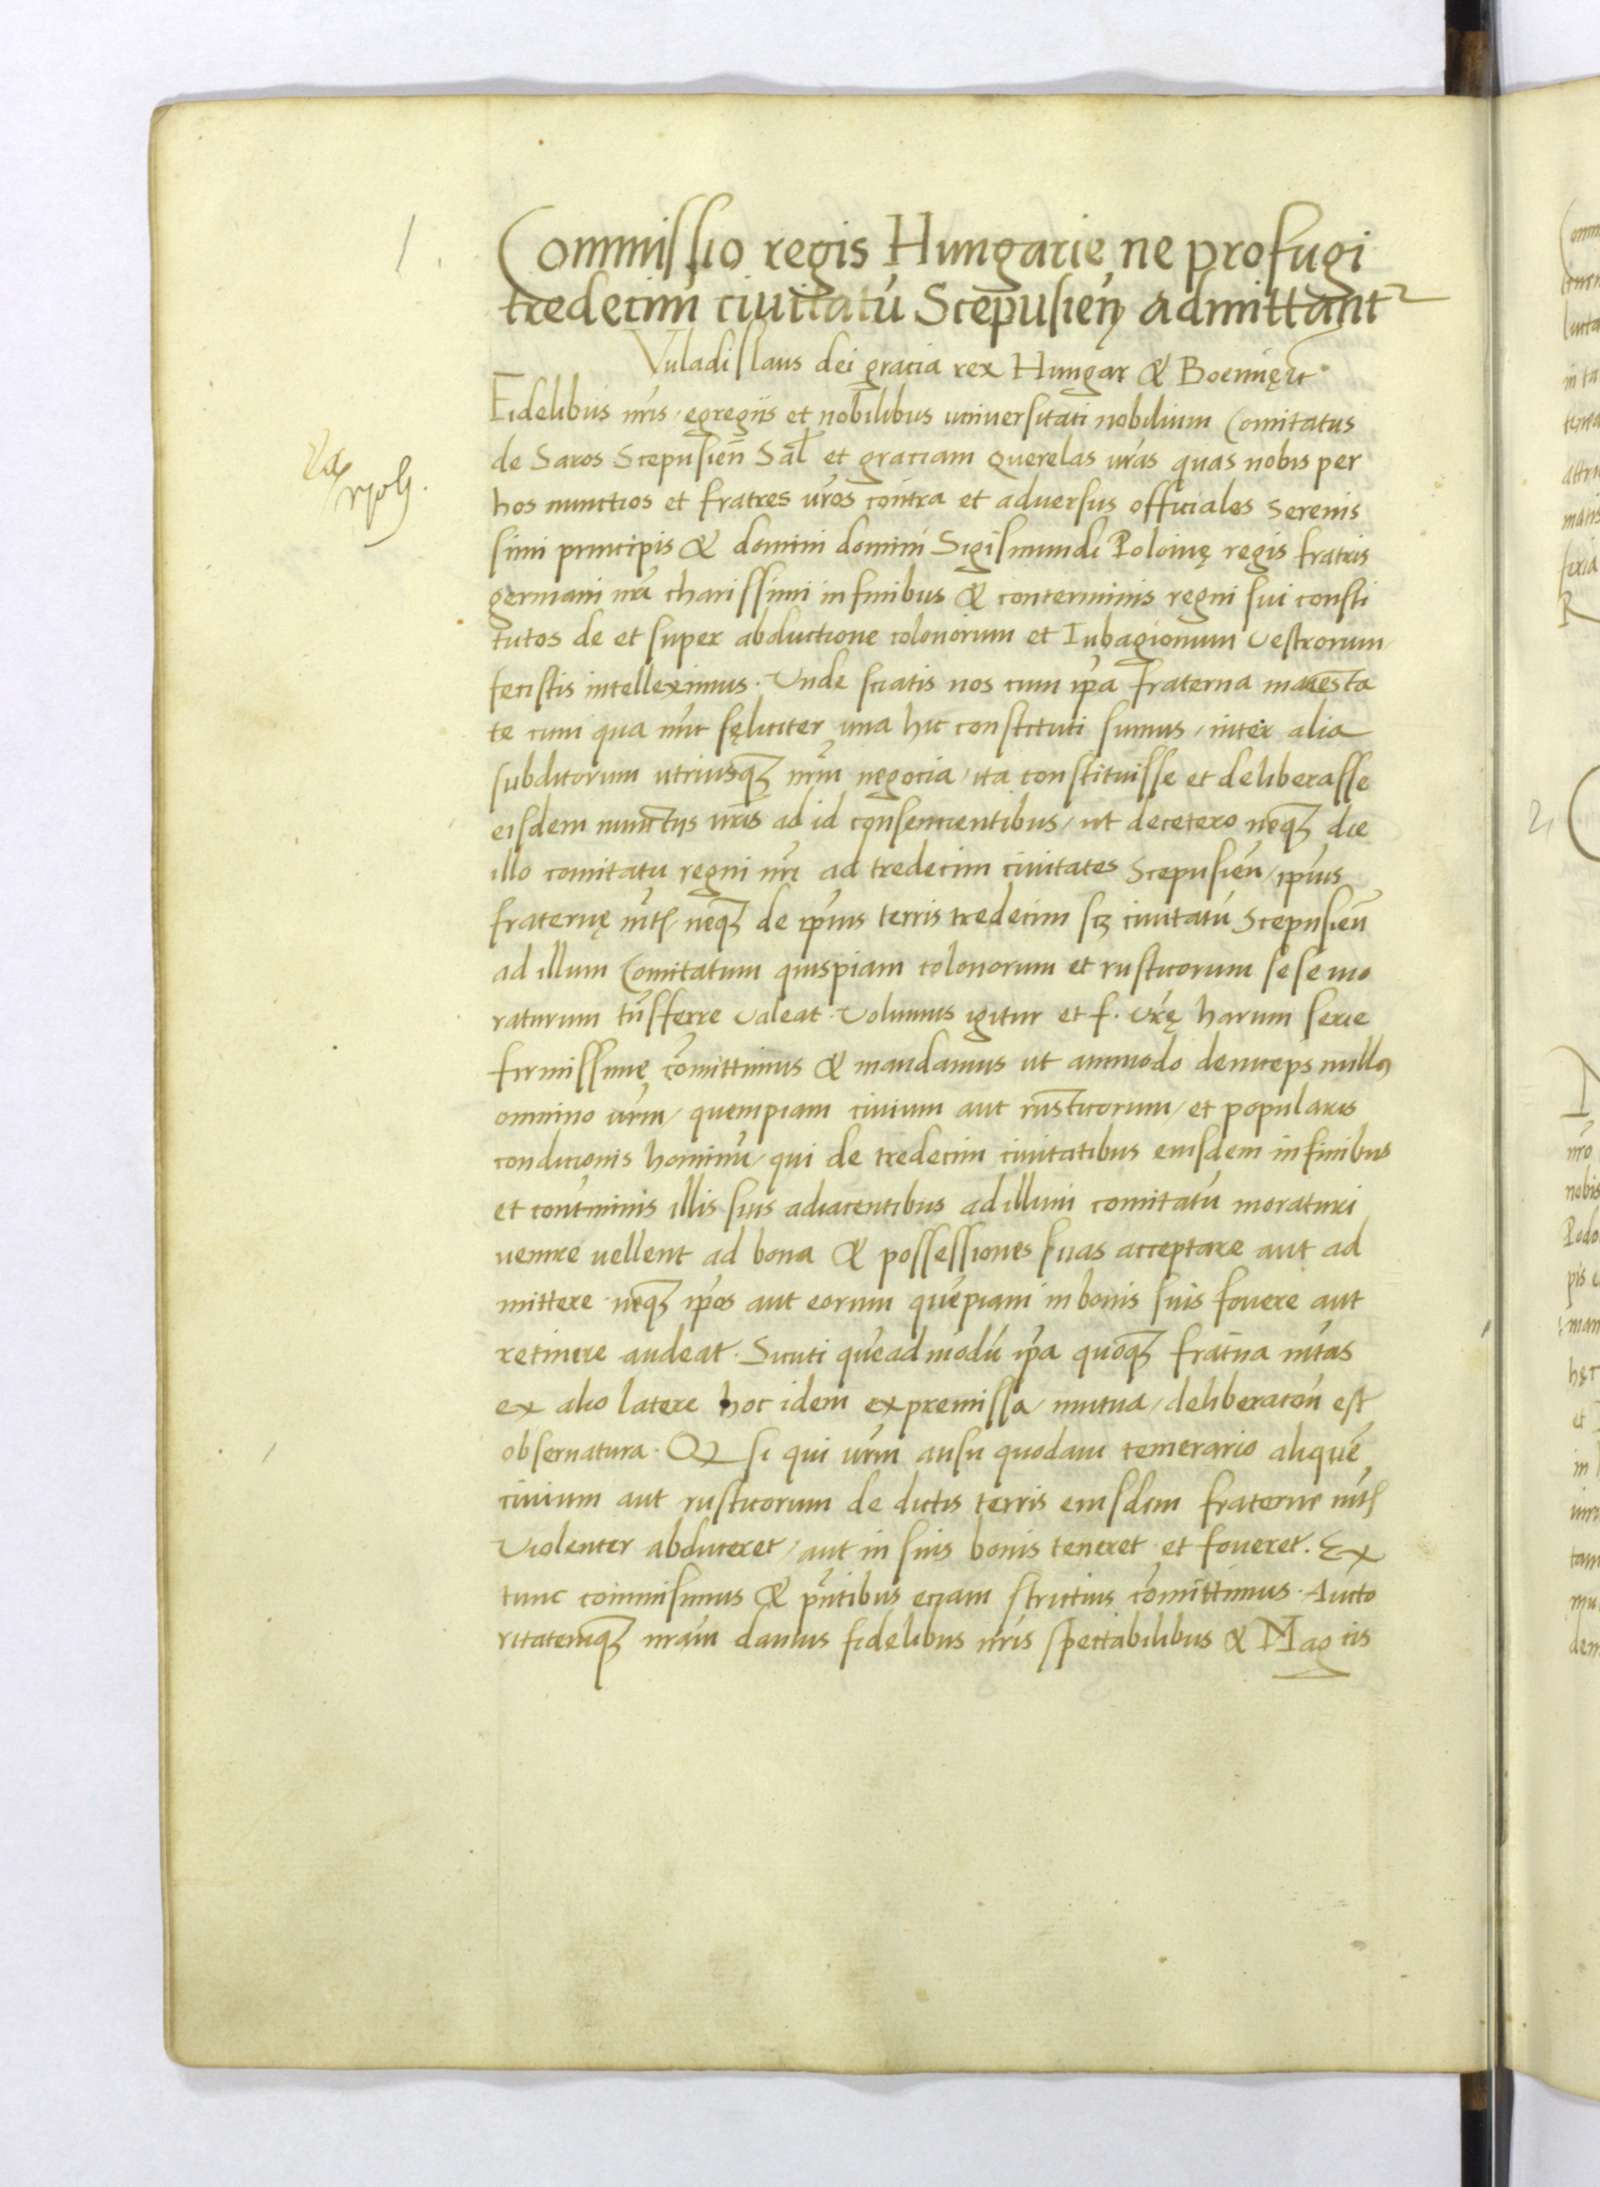 1.
Commissio regis Hungarie ne profugi
tredecim ciuitatū Scepusieñ admittant
Vuladislaus dei gracia rex Hungar & Boemię
Fidelibus nr̃is egregiis et nobilibus universitati nobilium Comitatus
de Saros Scepusien̄ Sal̄ et graciam Querelas vr̃as quas nobis per
hos nunctios et fratres vr̃os contra et adversus officiales Serenis
simi principis & domini domini Sigismundi Polonię regis fratris
germani nr̃i charissimi in finibus & conterminis regni sui consti
tutos de et super abductione colonorum et Iubagionum Vestrorum
fecistis intelleximus. Unde sciatis nos cum ip̃a fraterna maiesta
te cum qua nūc fęliciter una hic constituti sumus, inter alia
subditorum utriusq₃ nr̃m negocia, ita constituisse et deliberasse
eisdem nunctiis vr̃is ad id consencientibus, ut decetero neq₃ de
illo comitatu regni nr̃i ad tredecim civitates Scepusieñ, ip̃ius
fraternę mt̃is, neq₃ de ip̃ius terris tredecim scꝫ civitatū Scepusieñ
ad illum Comitatum quispiam colonorum et rusticorum sese mo
raturum trãsferre valeat. Volumus igitur et f. vr̃ę harum serie
firmissimę cõmittimus & mandamus ut ammodo deinceps nullus
omnino vr̃m, quempiam civium aut rusticorum, et popularis
condicionis hominū, qui de tredecim civitatibus eiusdem in finibus
et cont̃minis illis suis adiacentibus ad illum comitatū moraturi
venire vellent ad bona & possessiones suas acceptare aut ad
mittere neq₃ ip̃os aut eorum quēpiam in bonis suis fovere aut
retinere audeat. Sicuti quēadmodū ip̃a quoq₃ frat̃na mt̃as
ex alio latere hoc idem ex premissa, mutua, deliberacōn est
obseruatura. Qz si qui vr̃m ausu quodam temerario aliquē
civium aut rusticorum de dictis terris eiusdem fraterne mt̃is
Violenter abduceret, aut in suis bonis teneret et foveret. Ex
tunc commisimus & pñtibus eciam strictius cõmittimus. Aucto
ritatemq₃ nr̃am damus fidelibus nr̃is spectabilibus & Mag cis